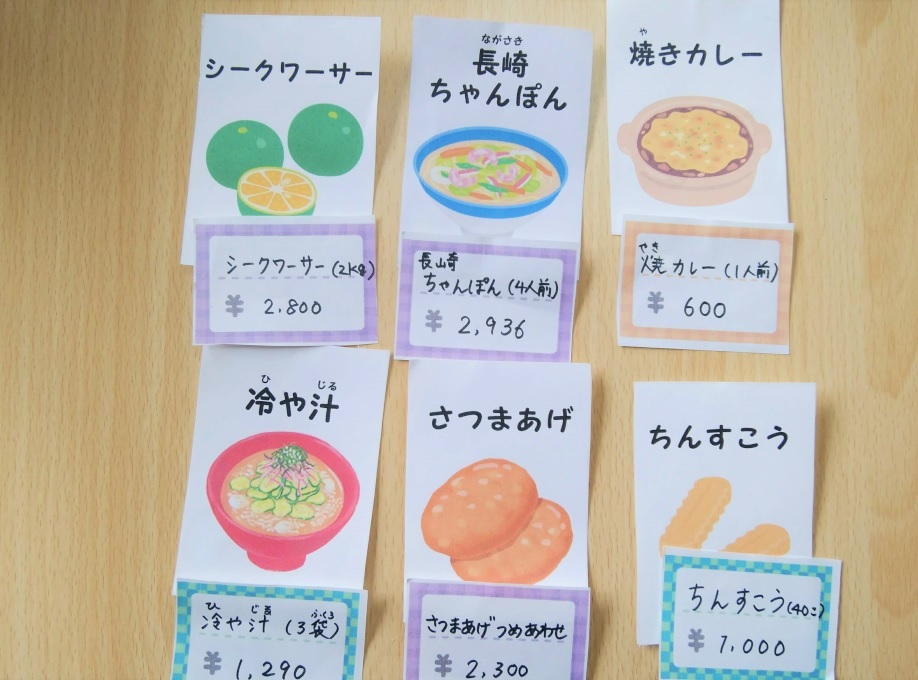 シークワーサー
シークワーサー(2kg)
¥ 2,800
ながさき
長崎
ちゃんぽん
長崎
ちゃんぽん(4人前)
¥ 2,936
や
焼きカレー
やき
焼カレー(1人前)
¥ 600
ひ じる
冷や汁
ひ じる ふくろ
冷や汁(3袋)
¥ 1,290
さつまあげ
さつまあげつめあわせ
¥ 2,300
ちんすこう
ちんすこう(40こ)
¥ 1,000